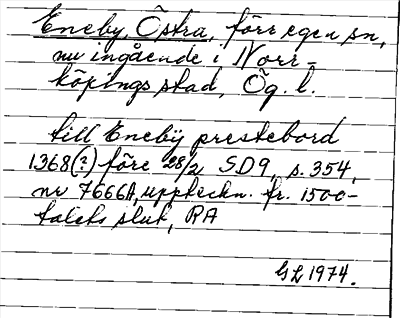 Eneby, Östra, förr egen sn,
nu ingående i Norr-
köpings stad, Ög. l.
till Eneby prestebord
1368(?) före 28/2 SD9, s. 354,
nr 7666A, uppteckn. fr. 1500-
talets slut, RA
GL 1974.